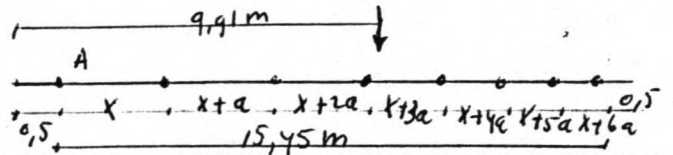 9,91 m
A
0,5 x x+a x+2a x+3a x+4a x+5a x+6a 0,5
15,45 m